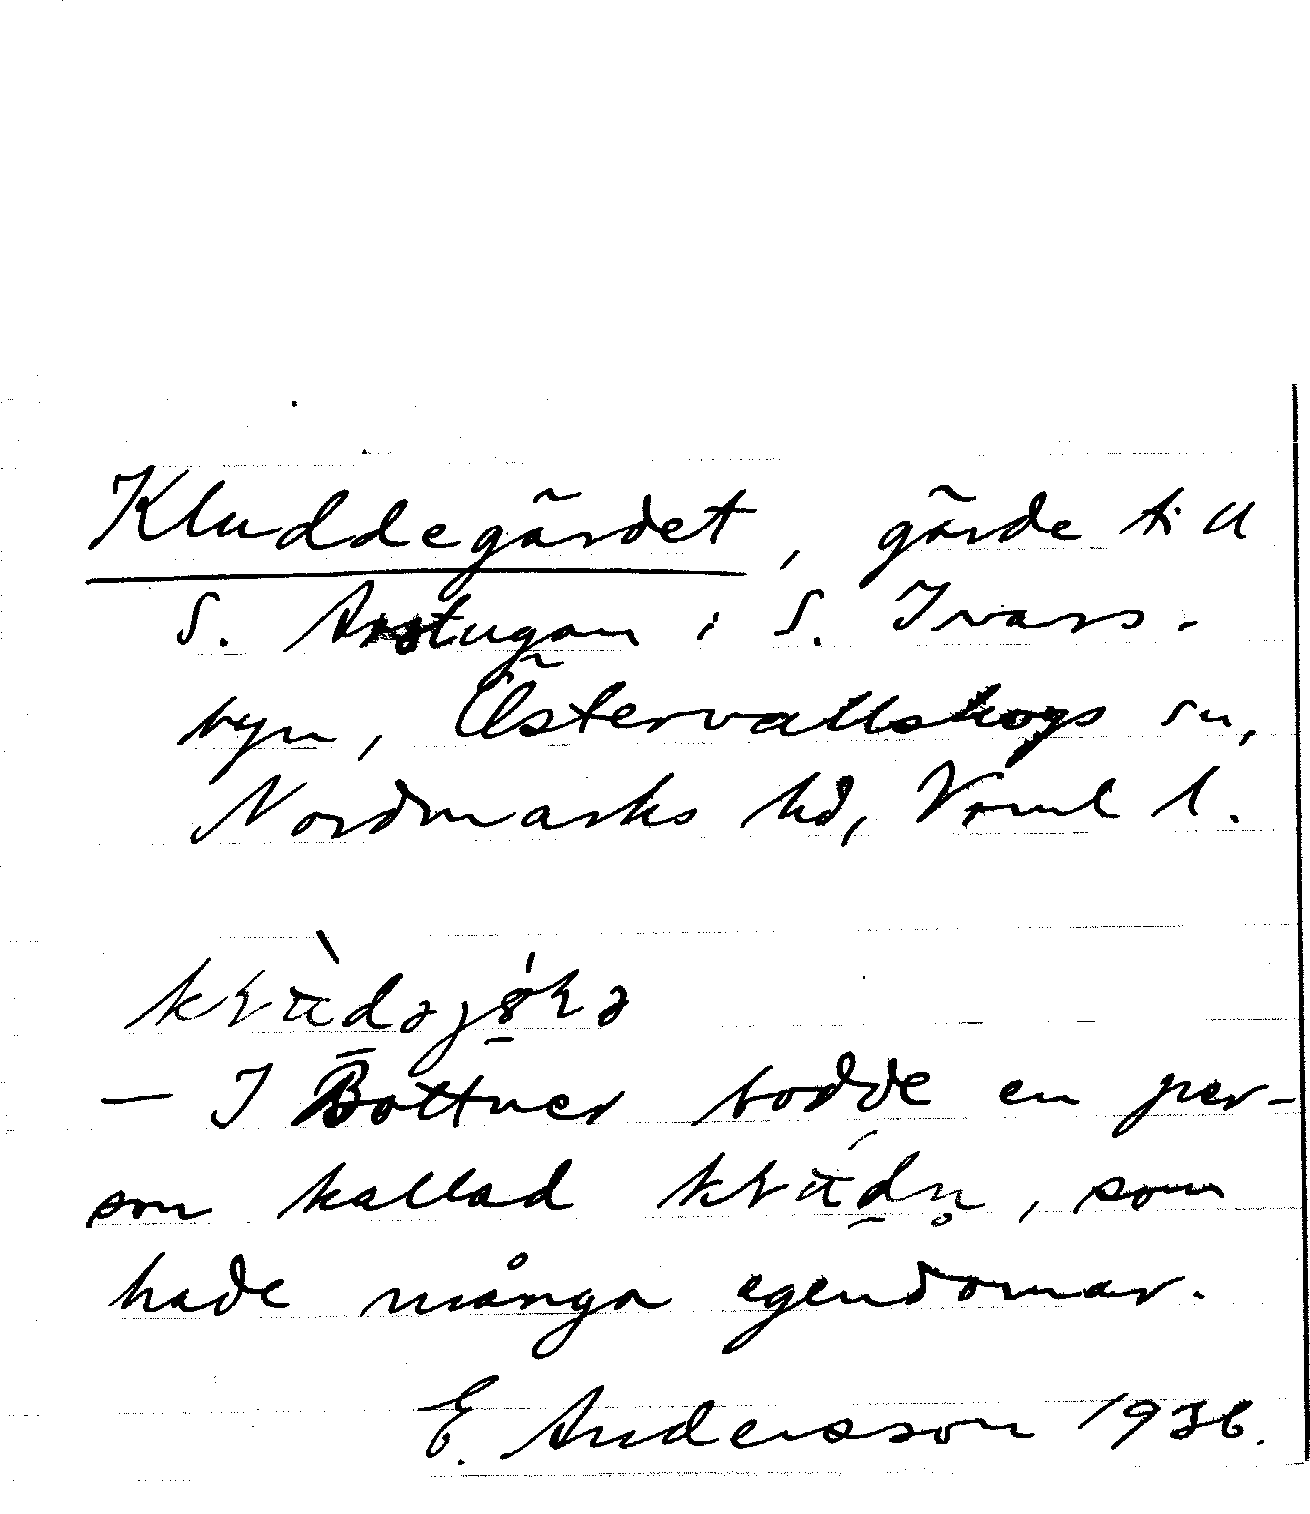 Kluddegärdet, gärde till
S. Arstugan i S. Ivars-
byn, Östervallskogs sn,
Nordmarks hd, Vrml l.
— I Bottner bodde en per-
son kallad, som
hade många egendomar.
E. Andersson 1936.